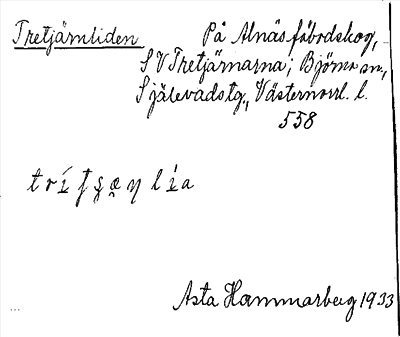 Tretjärnliden På Alnäs fäbodskog,
S V Tretjärnarna; Björna sn,
Själevads tg., Västernorrl. l.
558
Asta Hammarberg 1933